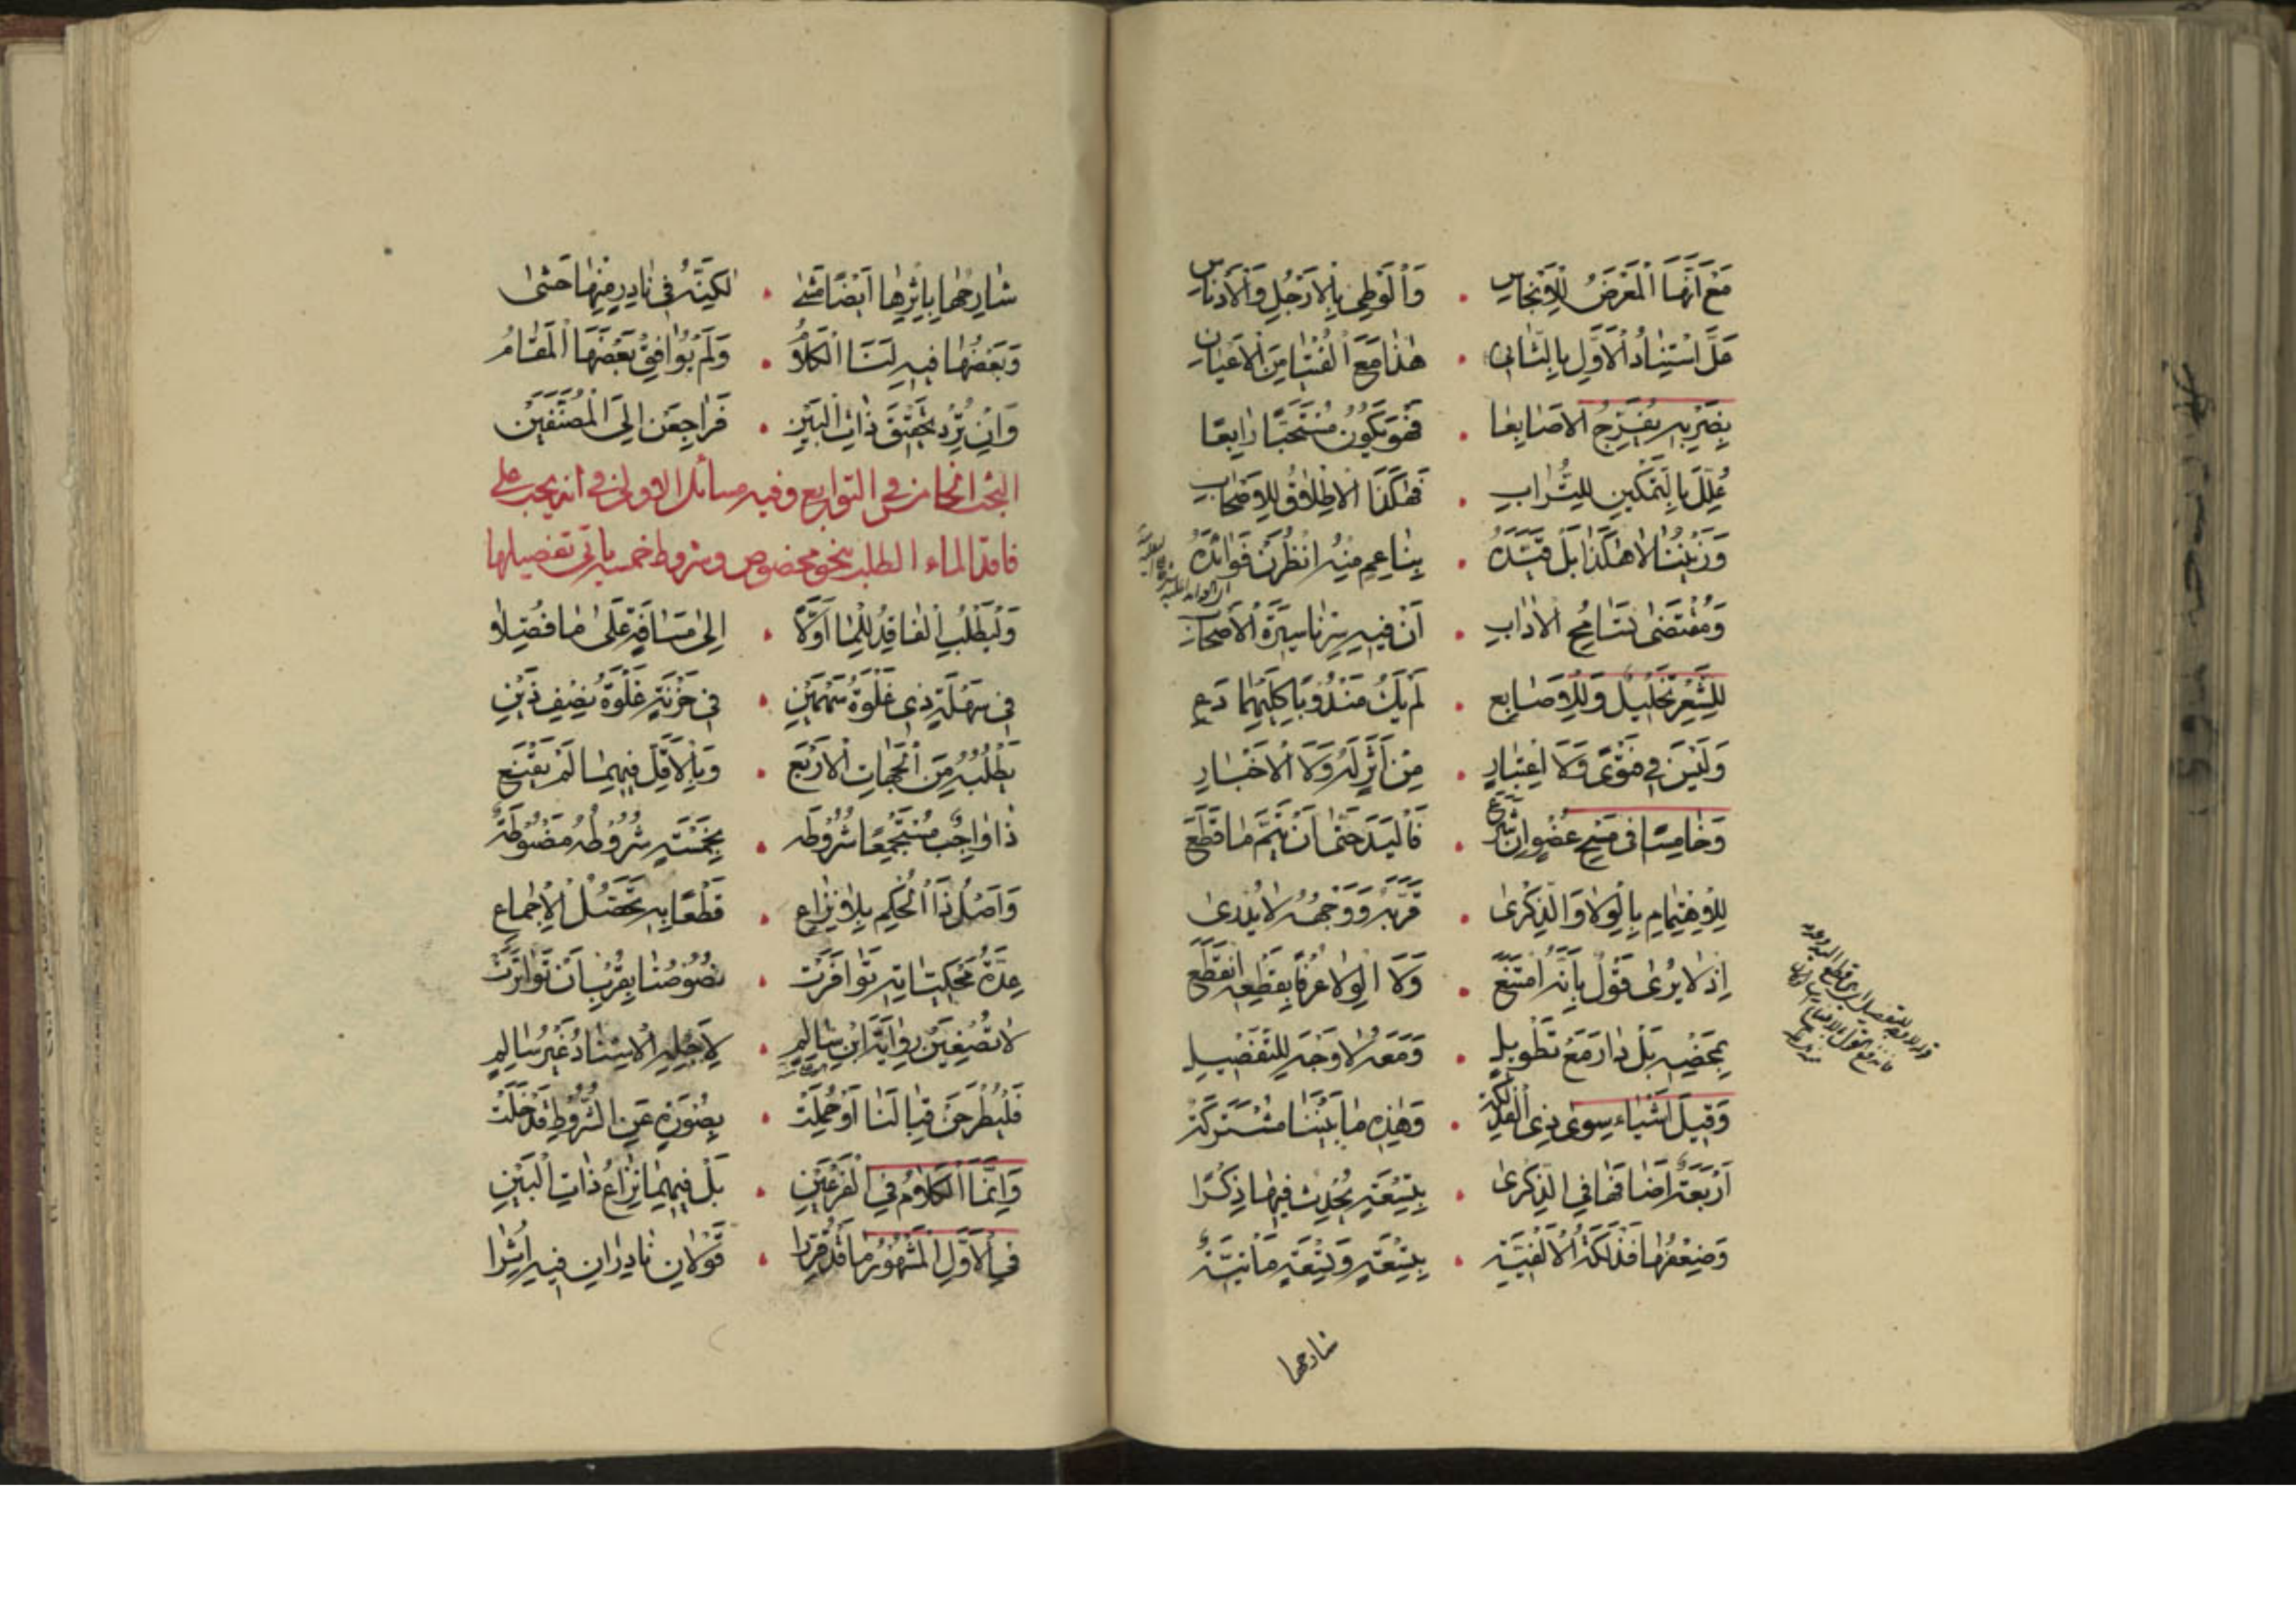 مَعَ أَنَّهَا الْمَعْرَضُ لِلْأَنْجَاسِ . وَالْوَطْيِ بِالْأَرْجُلِ وَالْأَدْنَاسِ
عَلَّ اسْتِنَادُ الْأَوَّلِ بِالثَّانِي . هٰذَا مَعَ الْفُتْيَا مِنَ الْأَعْيَانِ
بِضَرْبِهِ يُفَرِّجُ الْأَصَابِعَا . فَهُوَ يَكُونُ مُسْتَحَبًّا رَابِعَا
عُلِّلَ بِالتَّمْكِينِ لِلتُّرَابِ . فَهٰكَذَا الْإِطْلَاقُ لِلْأَصْحَابِ
لَا هٰكَذَا بَلْ قَيَّدَهُ . مِنْهُ انْظُرَنْ فَوَائِدَهُ
وَمُقْتَضَى تَسَامُحِ الْآدَابِ . أَنْ فِيهِ سِرْنَا سِيرَةَ الْأَصْحَابِ
لِلشَّعْرِ تَخْلِيلٌ وَلِلْأَصَابِعِ . لَمْ يَكُ مَنْدُوبًا كِلَيْهِمَا دَعِ
وَلَيْسَ فِي فَتْوًى وَلَا اعْتِبَارِ . مِنْ أَثَرٍ لَهُ وَلَا الْأَخْبَارِ
وَخَامِسًا فِي مَسْحِ عُضْوٍ إِنْ شَرَعَ . فَالْيَدَ حَتْمًا أَنْ يُتِمَّ مَا قَطَعَ
لِلْاهْتِمَامِ بِالْوِلَا وَالذِّكْرَى . قَرَّبَهُ وَوَجْهُهُ لَا يُدْرَى
إِذْ لَا يُرَى قَوْلٌ بِأَنَّهُ امْتَنَعَ . وَلَا الْوِلَا عُرْفًا بِقَطْعِهِ انْقَطَعَ
بِمَحْضِهِ بَلْ دَارَ مَعْ تَطْوِيلِ . وَمَعَهُ لَا وَجْهَ لِلتَّفْصِيلِ
وَقِيلَ أَشْيَاءُ سِوَى ذِي الْفَذْلَكَةِ . وَهٰذِهِ مَا بَيْنَنَا مُشْتَرَكَةٌ
أَرْبَعَةٌ أَضَافَهَا فِي الذِّكْرَى . بِتِسْعَةٍ بُحِثَ فِيهَا ذِكْرًا
وَضِعْفُهَا فَذْلَكَةُ الْأَلْفِيَّةِ . بِتِسْعَةٍ وَتِسْعَةٍ
شارحها
شَارِحُهَا بِإِثْرِهَا أَيْضًا مَشَى . لٰكِنَّهُ فِي نَادِرٍ مِنْهَا
وَبَعْضُهَا فِيهِ لَنَا الْكَلَامُ . وَلَمْ يُوَافِقْ بَعْضَهَا الْمَقَامُ
وَإِنْ تُرِدْ تَحْقِيقَ ذَاتِ الْبَيْنِ . فَرَاجِعَنْ إِلَى الْمُصَنَّفَيْنِ
البحث الخامس في التوابع وفيه مسائل الأولى في أنه يجب على
فاقد الماء الطلب بنحو مخصوص وشروط خمسة يأتي تفصيلها
وَلْيَطْلُبِ الْفَاقِدُ لِلْمَا أَوَّلًا . إِلَى مَسَافَةٍ عَلَى مَا فُصِّلَا
فِي سَهْلَةٍ ذِي غَلْوَةُ سَهْمَيْنِ . فِي حَزْنَةٍ غَلْوَةُ نِصْفِ ذَيْنِ
يَطْلُبُهُ مِنَ الْجِهَاتِ الْأَرْبَعِ . وَبِالْأَقَلِّ فِيهِمَا لَمْ يُقْنَعِ
ذَا وَاجِبٌ مُسْتَجْمِعًا شُرُوطَه . بِخَمْسَةٍ شُرُوطُهُ مَضْبُوطَةٌ
وَأَصْلُ ذَا الْحُكْمِ بِلَا نِزَاعِ . قَطْعًا بِهِ تَحَصُّلُ الْإِجْمَاعِ
عِدَّةُ مَحْكِيَّاتِهِ تَوَافَرَتْ . نُصُوصُنَا بِقُرْبِ أَنْ تَوَاتَرَتْ
لَا تُصْغِيَنْ رِوَايَةَ ابْنِ سَالِمِ . لِأَجْلِهِ الْإِسْنَادُ غَيْرُ سَالِمِ
فَلْيُطْرَحَنْ قِبَالَنَا أَوْ حُمِلَتْ . بِصُورَةٍ عَنِ الشُّرُوطِ قَدْ خَلَتْ
وَإِنَّمَا الْكَلَامُ فِي الْفَرْعَيْنِ . بَلْ فِيهِمَا نِزَاعُ ذَاتِ الْبَيْنِ
فِي الْأَوَّلِ الْمَشْهُورُ مَا قَدْ قُرِّرَا . قَوْلَانِ نَادِرَانِ فِيهِ أُثِرَا